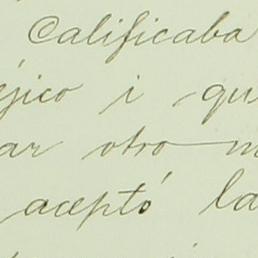 Calificaba
éjico i qu
ar otro m
aceptó la